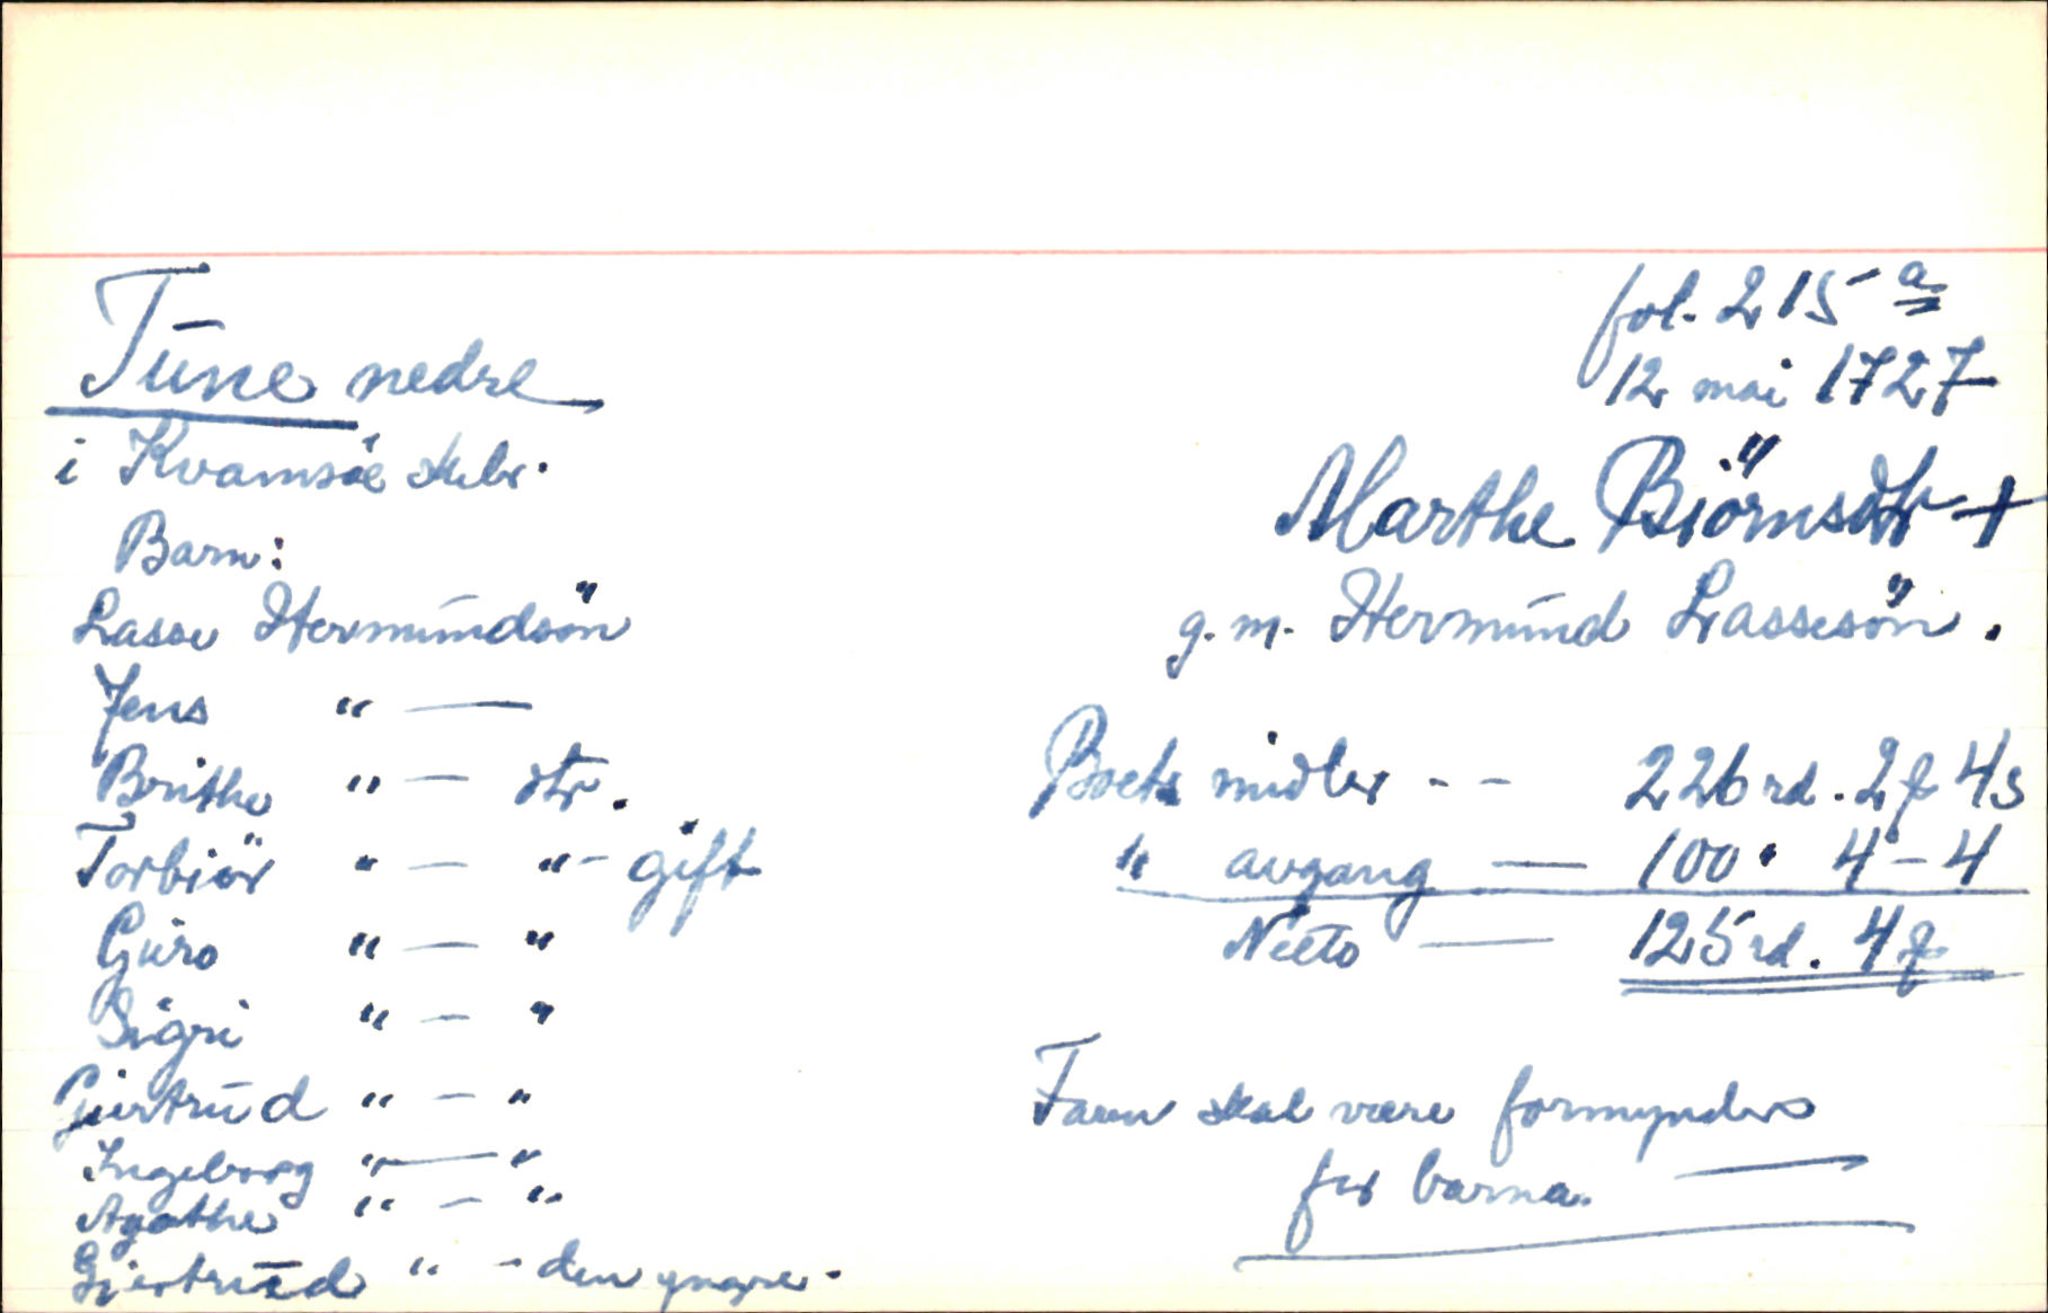 Tune nedre
i Kvamsöe skbr.
Barn:
Lasse Hermundsön
Jens " —
Brithe " — dtr.
Torbiör " — " - gift
Guro " — "
Sigri " — "
Giertrud " — "
Ingeborg " — "
Agathe " — "
Giertrud " - den yngre.
fol. 215 a.
12 mai 1727
Marthe Biörnsdtr +
g. m. Hermund Lassesön.
Boets midler - - 226 rd. 2 ƒ 4 s
" avgang — 100 " 4 - 4
Netto — 125 rd. 4 ƒ
Faren skal være formynder
for barna. —